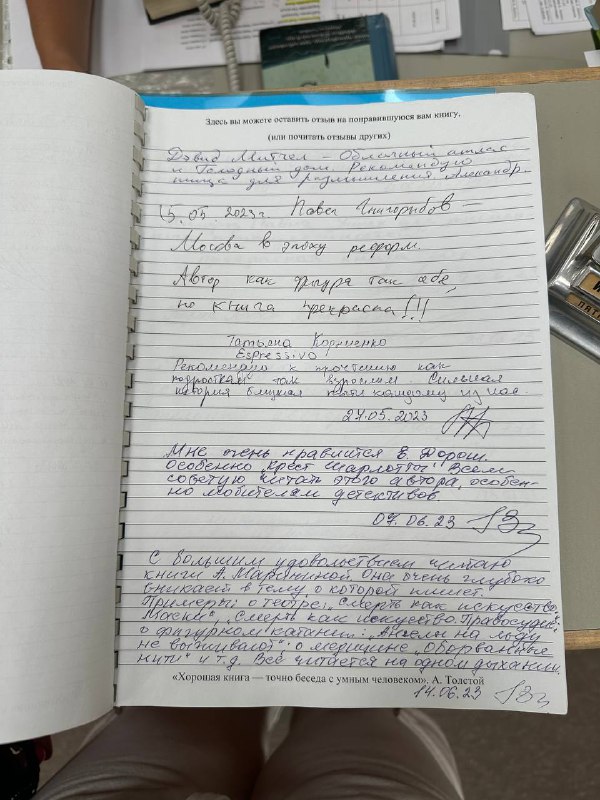 Здесь вы можете оставить отзыв на понравившуюся вам книгу.
(или почитать отзывы других)
Дэвид Митчел – Облачный атлас
и Голодный дом. Рекомендую
пища для размышления Александр.
15.05.2023г. Павел Гнилорыбов –
Москва в эпоху реформ.
Автор как фигура так себе,
но книга прекрасна!!!
Татьяна Корниенко
Espressivo
Рекомендовано к прочтению как
подросткам так взрослым. Сильная
история близкая каждому из нас.
27.05.2023
Мне очень нравится Е. Дорош
особенно „Крест Шарлотты". Всем
советую читать этого автора, особен-
но любителям детективов.
07.06.23
С большим удовольствием читаю
книги А. Марининой. Она очень глубоко
вникает в тему о которой пишет.
Примеры: о театре: „Смерть как искусство.
Маски", „Смерть как искусство. Правосудие"
о фигурном катании: „Ангелы на льду
не выживают"; о медицине „Оборванные
нити" и т.д. Всё читается на одном дыхании.
«Хорошая книга — точно беседа с умным человеком». А. Толстой
14.06.23